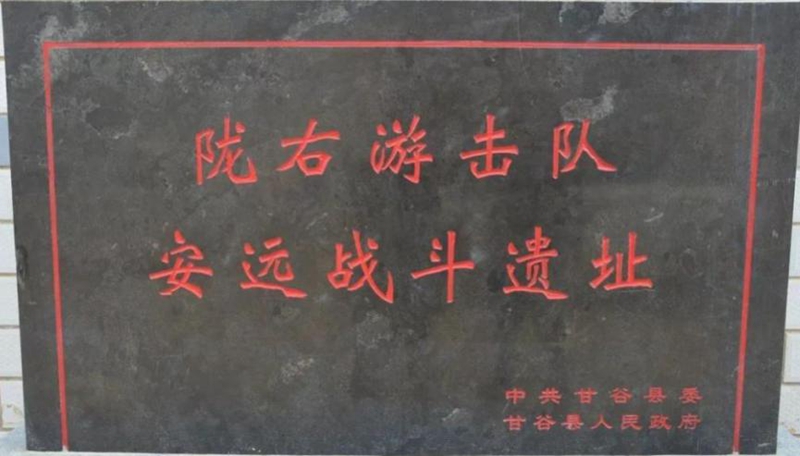 陇右游击队
安远战斗遗址
中共甘谷县委
甘谷县人民政府